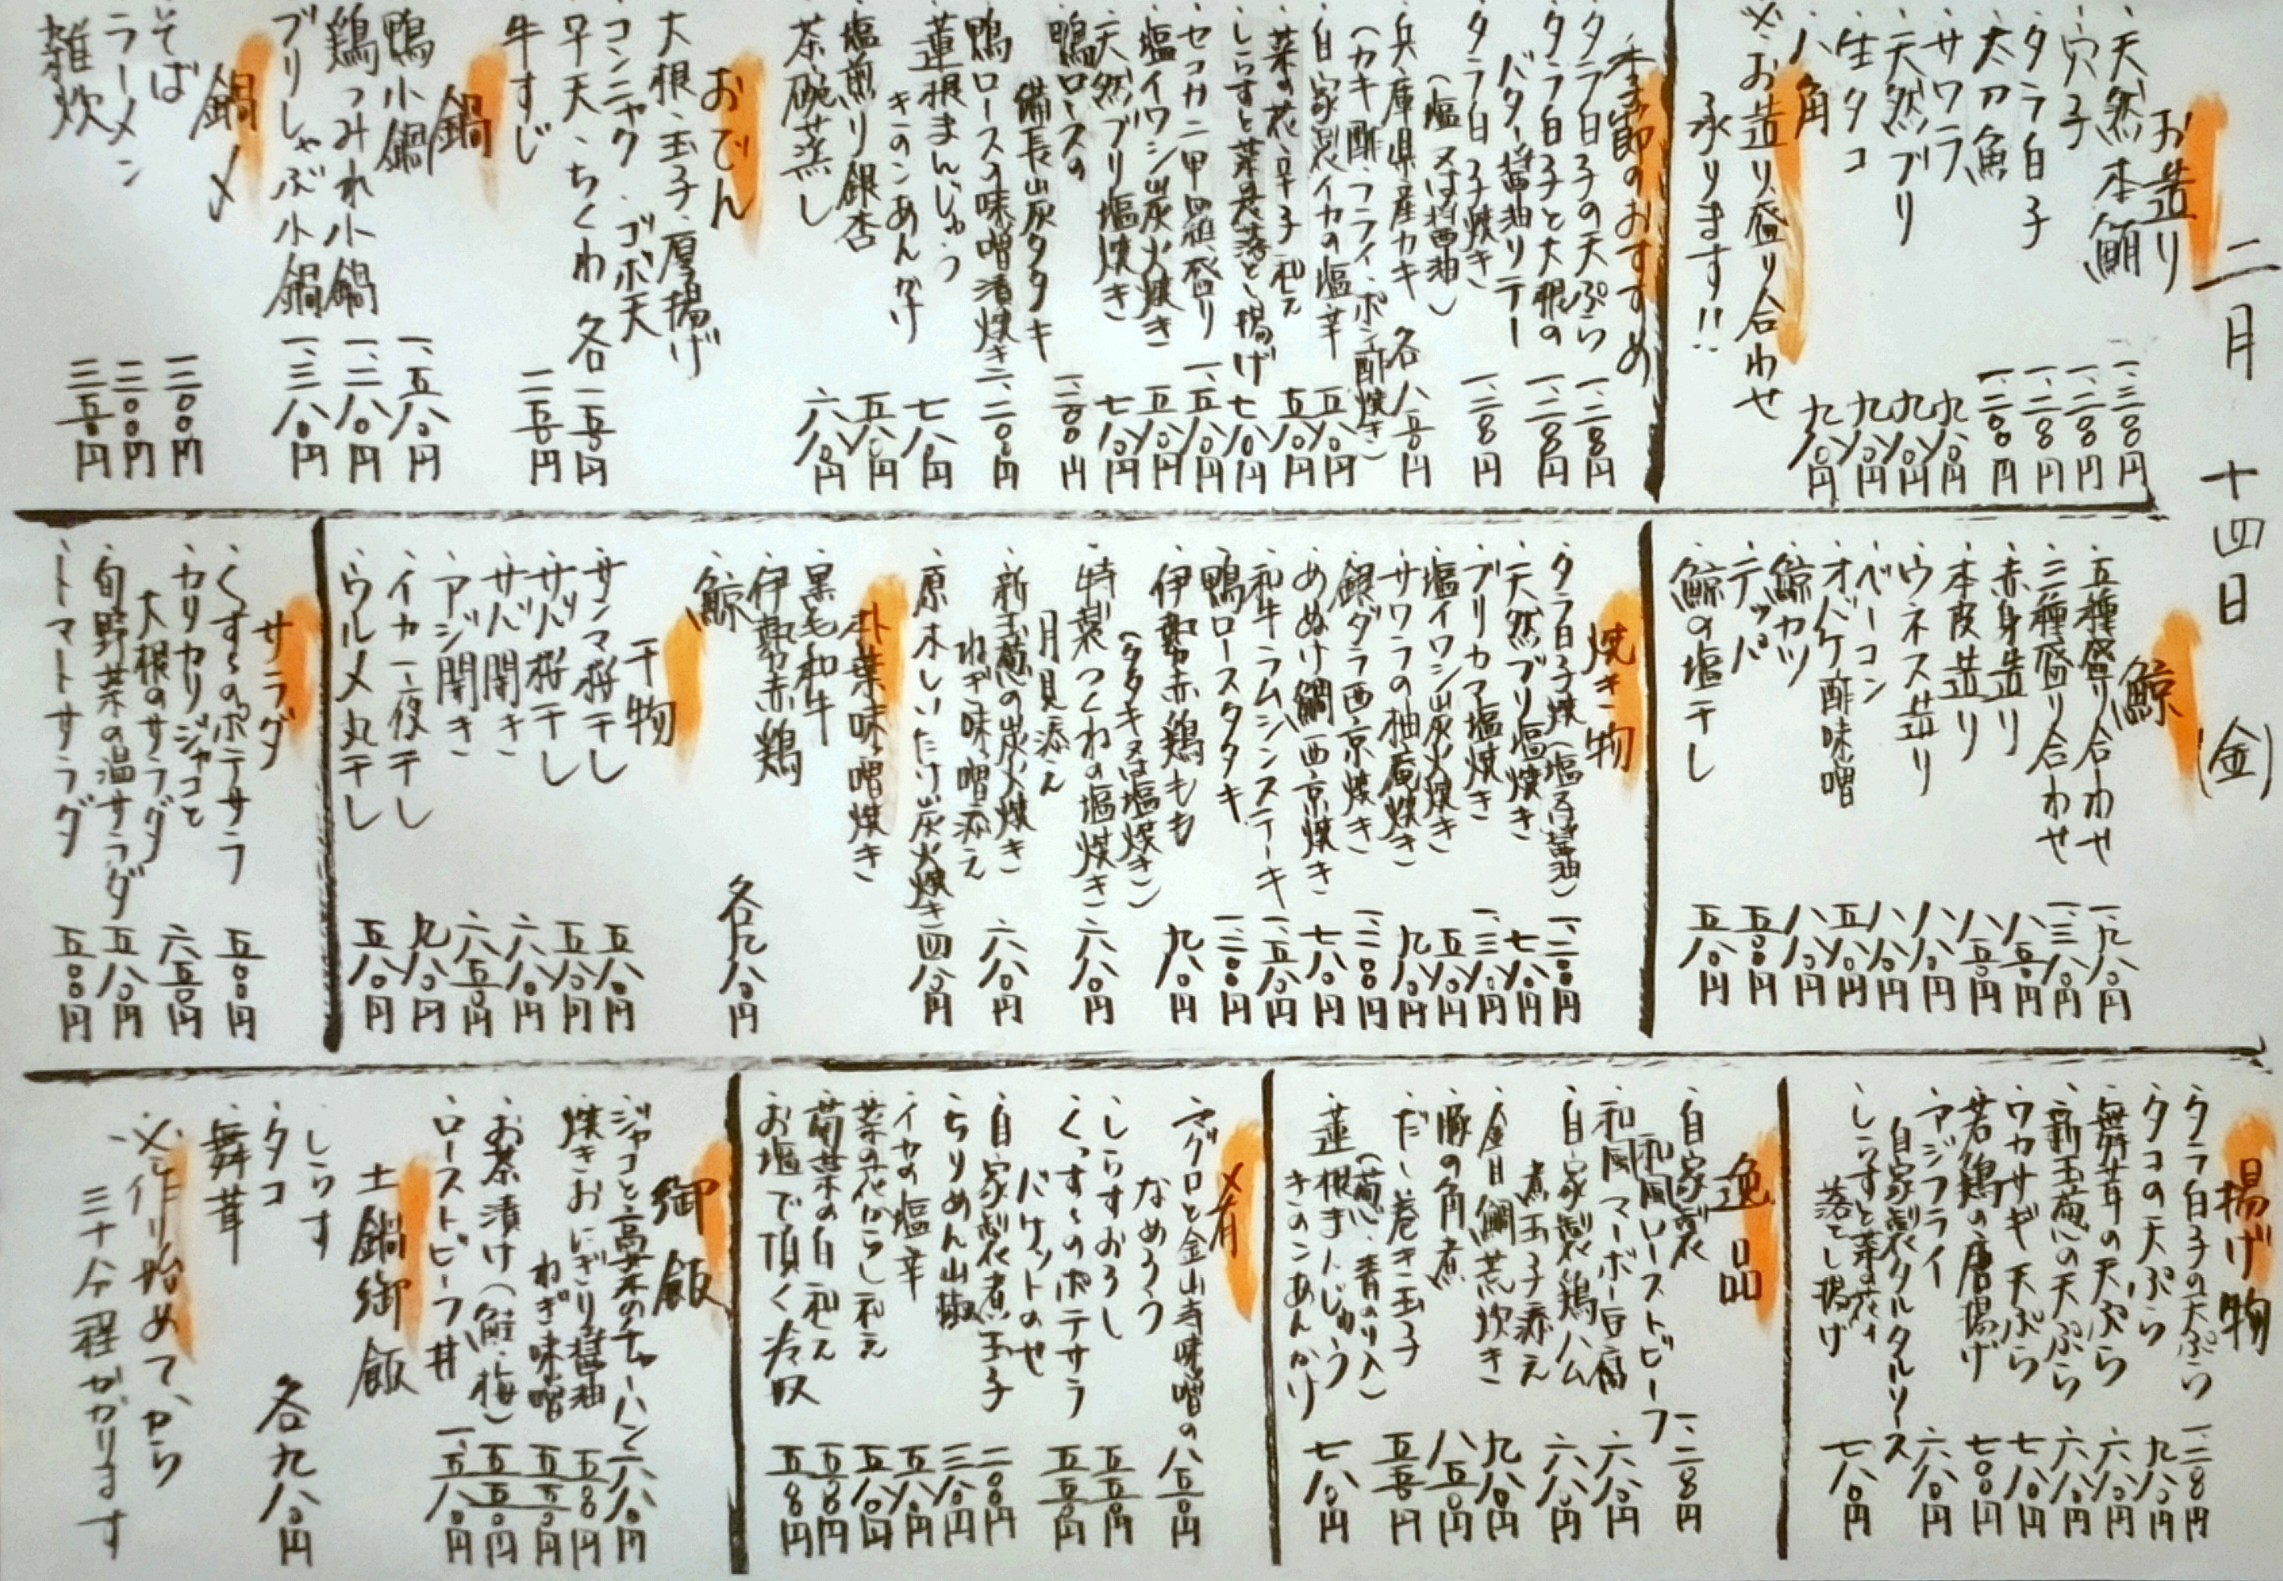 二月十四日(金)
お造り
・天然本鮪 一、三〇〇円
・穴子 一、二〇〇円
・タラ白子 一、二〇〇円
・太刀魚 一、二〇〇円
・サワラ 九八〇円
・天然ブリ 九八〇円
・生タコ 九八〇円
・八角 九八〇円
※お造り盛り合わせ
承ります!!
季節のおすすめ
・タラ白子の天ぷら 一、二〇〇円
・タラ白子と大根の
バター醤油ソテー 一、二〇〇円
・タラ白子焼き
(塩又は醤油) 一、二〇〇円
・兵庫県産カキ 各八五〇円
(カキ酢・フライ・ポン酢焼き)
・自家製イカの塩辛 五八〇円
・菜の花辛子和え 五八〇円
・しらすと菜の花落とし揚げ 七八〇円
・セコガニ甲羅盛り 一、五八〇円
・塩イワシ炭火焼き 五八〇円
・天然ブリ塩焼き 七八〇円
・鴨ロースの
備長炭タタキ 一、二〇〇円
・鴨ロースの味噌漬焼き 一、二〇〇円
・蓮根まんじゅう
きのこあんかけ 七八〇円
・塩煎り銀杏 五八〇円
・茶碗蒸し 六八〇円
おでん
大根・玉子・厚揚げ
コンニャク・ゴボ天
平天・ちくわ 各二五〇円
牛すじ 三五〇円
鍋
・鴨小鍋 一、五八〇円
・鶏つみれ小鍋 一、二八〇円
・ブリしゃぶ小鍋 一、三八〇円
鍋〆
・そば 三〇〇円
・ラーメン 三〇〇円
・雑炊 三五〇円
鯨
・五種盛り合わせ 一、九八〇円
・三種盛り合わせ 一、三八〇円
・赤身造り 八五〇円
・本皮造り 八五〇円
・ウネス造り 八八〇円
・ベーコン 八八〇円
・オバケ酢味噌 五八〇円
・鯨カツ 八八〇円
・テッパ 五五〇円
・鯨の塩干し 五八〇円
焼き物
・タラ白子焼(塩又は醤油) 一、二〇〇円
・天然ブリ塩焼き 七八〇円
・ブリカマ塩焼き 一、三八〇円
・塩イワシ炭火焼き 五八〇円
・サワラの柚庵焼き 九八〇円
・銀ダラ西京焼き 一、二〇〇円
・めぬけ鯛西京焼き 七八〇円
・和牛ラムシンステーキ 一、五八〇円
・鴨ロースタタキ 一、二〇〇円
・伊勢赤鶏もも
(タタキ又は塩焼き) 九八〇円
・特製つくねの塩焼き
月見添え 六八〇円
・新玉葱の炭火焼き
ねぎ味噌添え 六八〇円
・原木しいたけ炭火焼き 四八〇円
朴葉味噌焼き
・黒毛和牛
・伊勢赤鶏
・鯨
各九八〇円
干物
・サンマ桜干し 五八〇円
・サバ桜干し 五八〇円
・サバ開き 六八〇円
・アジ開き 六五〇円
・イカ一夜干し 九八〇円
・ウルメ丸干し 五八〇円
サラダ
・くずしのポテサラ 五〇〇円
・カリカリジャコと
大根のサラダ 六五〇円
・旬野菜の温サラダ 五八〇円
・トマトサラダ 五〇〇円
揚げ物
・タラ白子の天ぷら 一、二〇〇円
・タコの天ぷら 九八〇円
・舞茸の天ぷら 六八〇円
・新玉葱の天ぷら 六八〇円
・ワカサギ天ぷら 七八〇円
・若鶏の唐揚げ 七〇〇円
・アジフライ
自家製タルタルソース 六八〇円
・しらすと菜の花の
落とし揚げ 七八〇円
逸品
・自家製
和風ローストビーフ 一、二〇〇円
・和風マーボー豆腐 六八〇円
・自家製鶏ハム
煮玉子添え 六八〇円
・金目鯛荒炊き 九八〇円
・豚の角煮 八五〇円
・だし巻き玉子
(葱、青のり入) 五五〇円
・蓮根まんじゅう
きのこあんかけ 七八〇円
〆肴
・マグロと金山寺味噌の
なめろう 八五〇円
・しらすおろし 五五〇円
・くずしのポテサラ
バケットのせ 五五〇円
・自家製煮玉子 二〇〇円
・ちりめん山椒 三八〇円
・イカの塩辛 五八〇円
・菜の花からし和え 五八〇円
・菊菜の白和え 五五〇円
・お塩で頂く冷奴 五五〇円
御飯
・ジャコと高菜のチャーハン 六八〇円
・焼きおにぎり醤油 五五〇円
ねぎ味噌 五五〇円
・お茶漬け(鮭・梅) 五五〇円
・ローストビーフ丼 一、五八〇円
土鍋御飯
・しらす
・タコ
・舞茸
各九八〇円
※作り始めてから
三十分程かかります